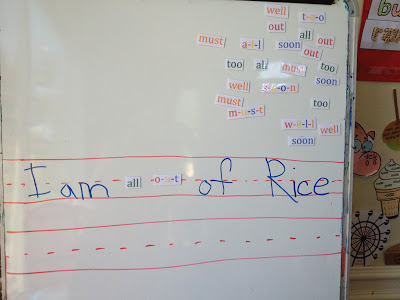 well t-o-o
out
must a-l-l soon all out
out
too all must too
soon
well s-o-o-n
must too
m-u-s-t
w-e-l-l well
soon
I am all -o-u-t of Rice